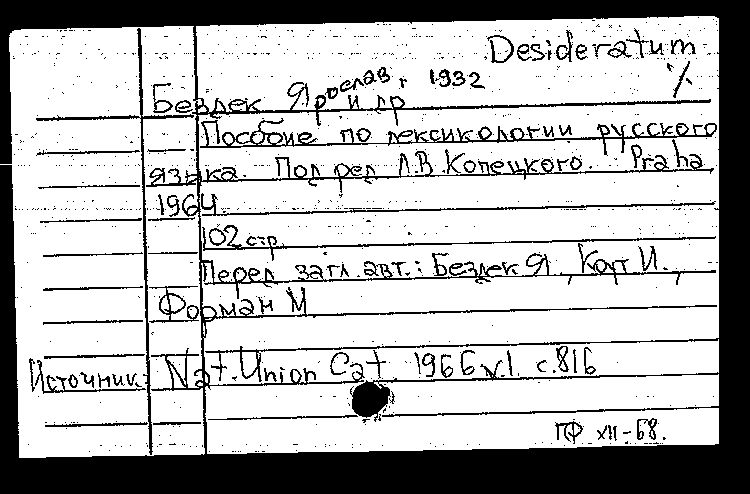 Desideratum
Бездек Ярослав, 1932 %
и др
Пособие по лексикологии русского
языка. Под ред Л.В.Копецкого. Praha,
1964.
102 стр.
Перед загл. авт.: Бездек Я., Коут И.,
Форман М.
Источник: Nat.Union Cat 1966 v.1 с.816
ПФ XII-68.